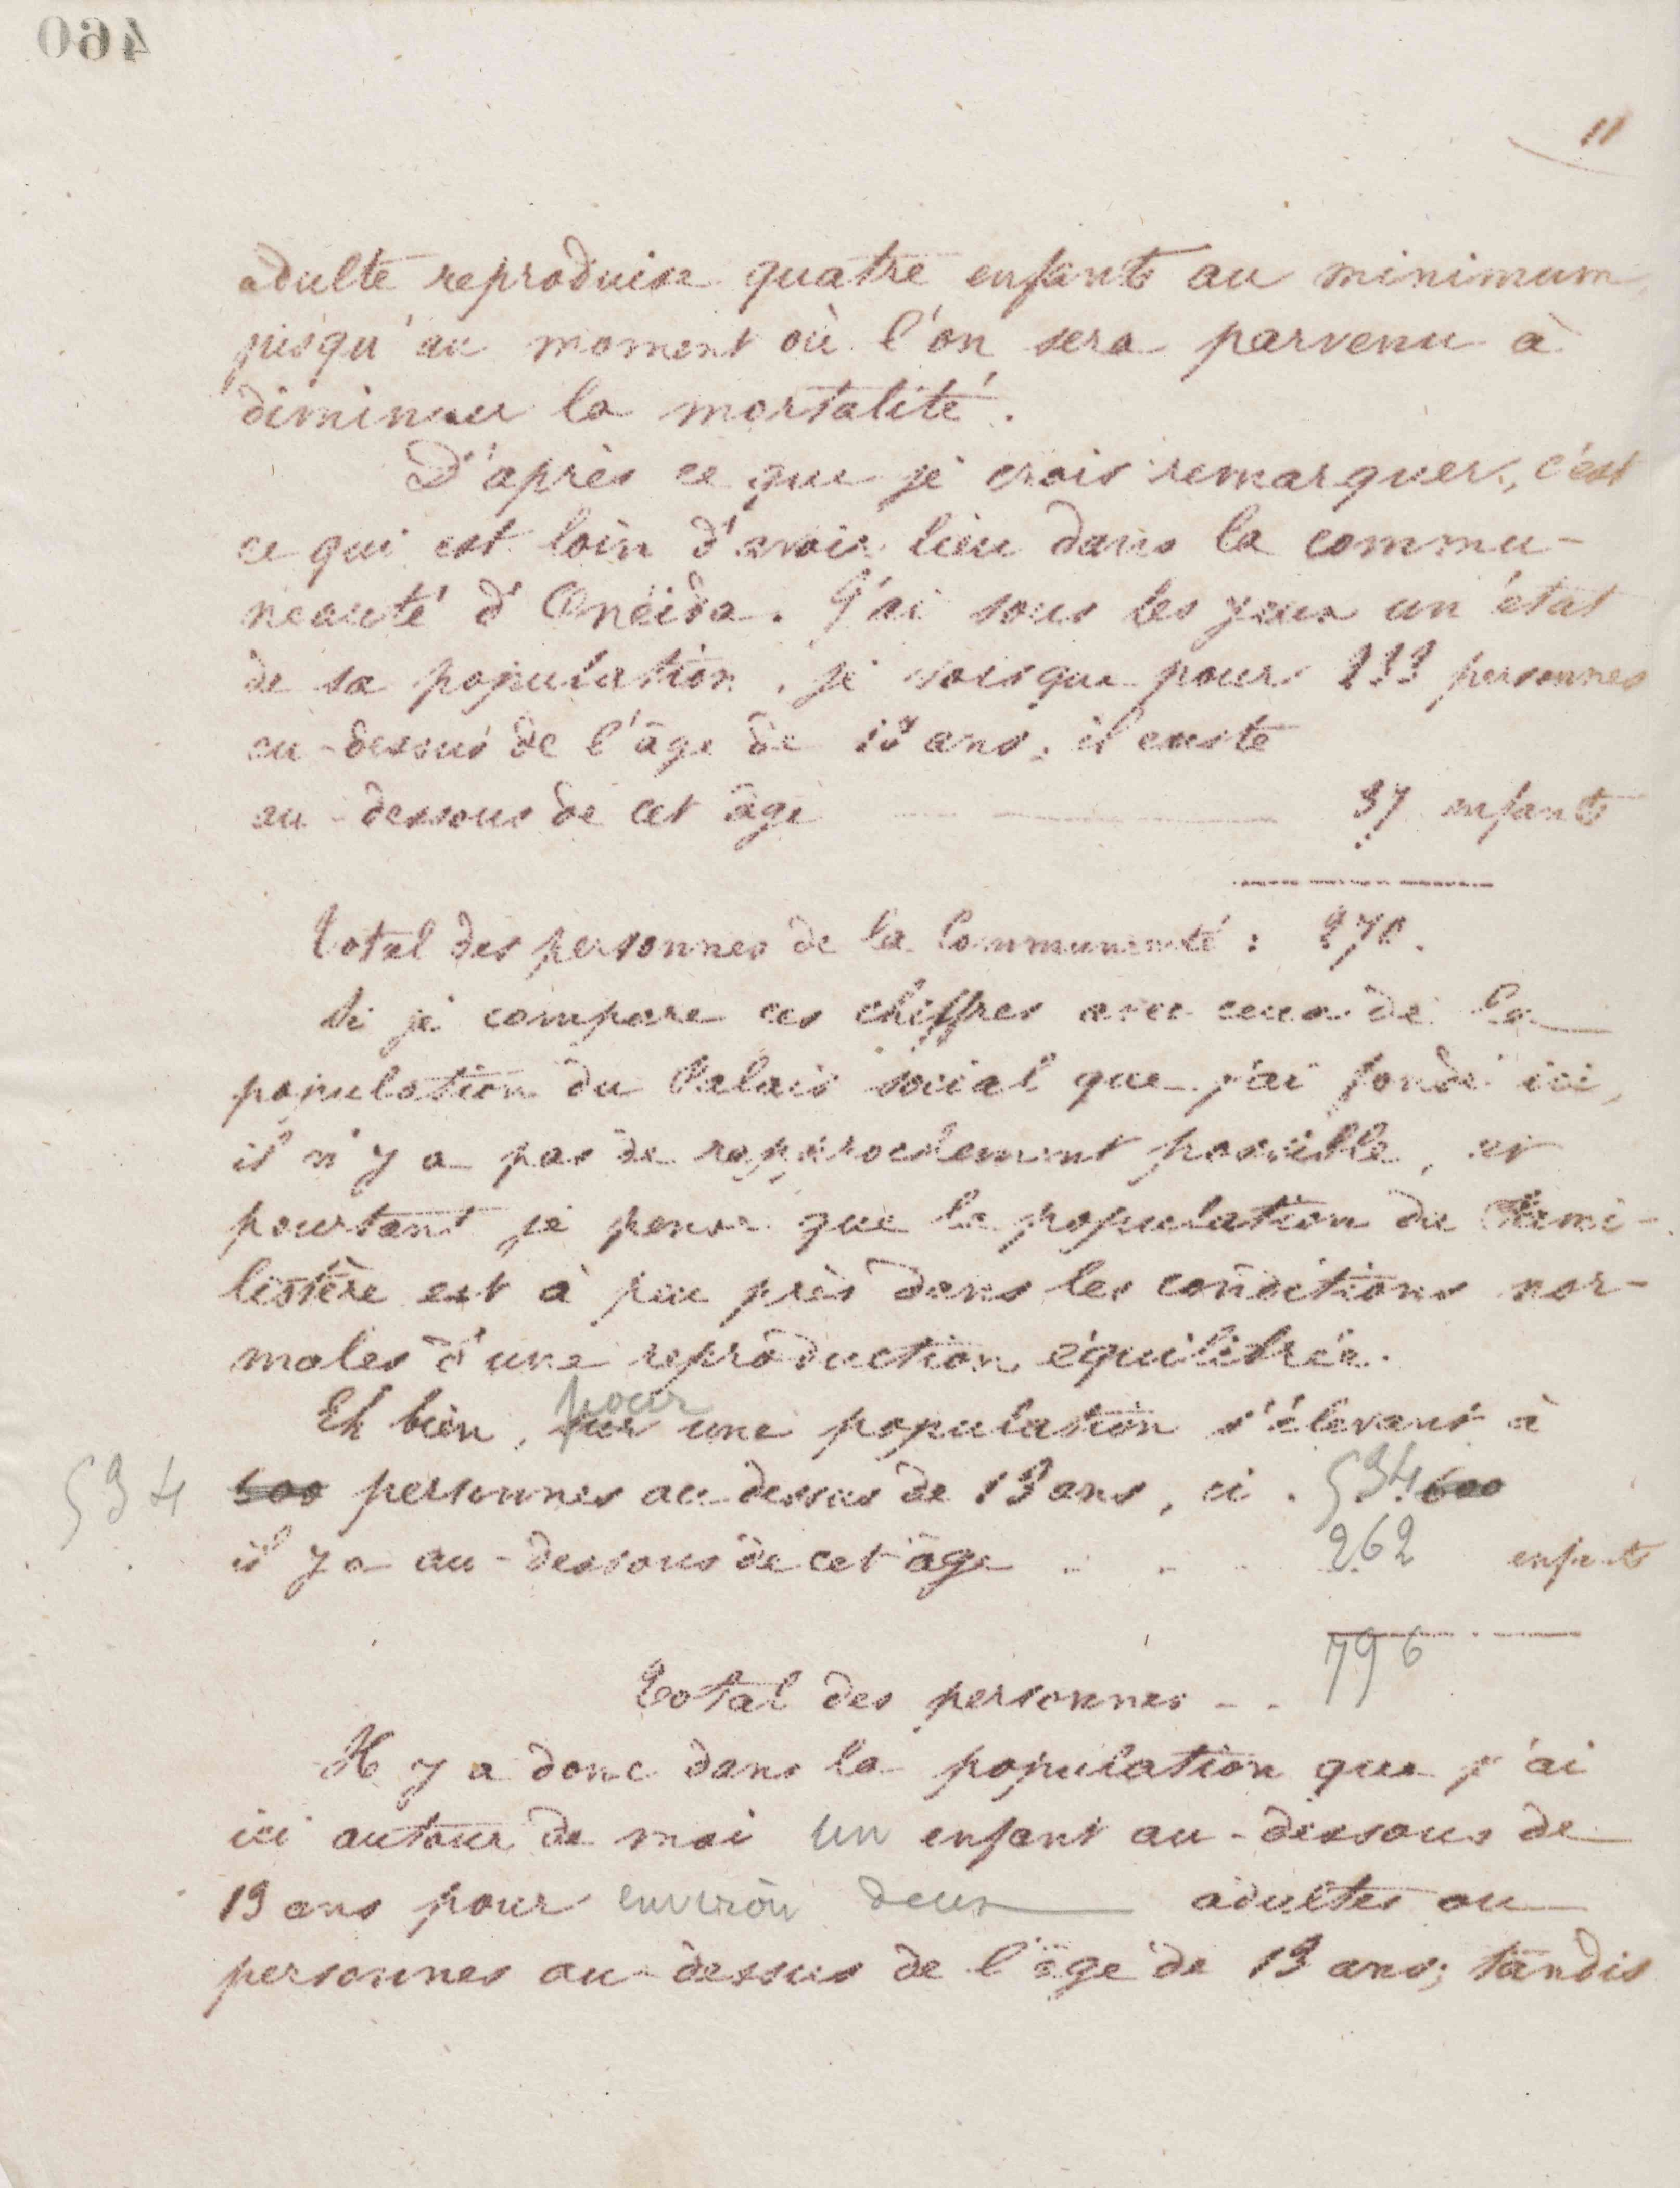 460
11
adulte reproduise quatre enfants au minimum
jusqu'au moment où l'on sera parvenu à
diminuer la mortalité.
D'après ce que je crois remarquer, c'est
ce qui est loin d'avoir lieu dans la commu-
neauté d'Onéïda. J'ai sous les yeux un état
de sa population, je vois que pour 233 personnes
au-dessus de l'âge de 13 ans, il existe
au-dessous de cet âge 37 enfants
Total des personnes de la Communauté : 270.
Si je compare ces chiffres avec ceux de la
population du Palais social que j'ai fondé ici,
il n'y a pas de rapprochement possible, et
pourtant je pense que la population du Fami-
listère est à peu près dans les conditions nor-
males d'une reproduction équilibrée.
pour
Eh bien, sur une population s'élevant à
534 600 personnes au-dessus de 13 ans, ci . 534 600
il y a au-dessous de cet âge . . . 262 enfants
796
Total des personnes - -
Il y a donc dans la population que j'ai
ici autour de moi un enfant au-dessous de
13 ans pour environ deux adultes ou
personnes au-dessus de l'âge de 13 ans; tandis